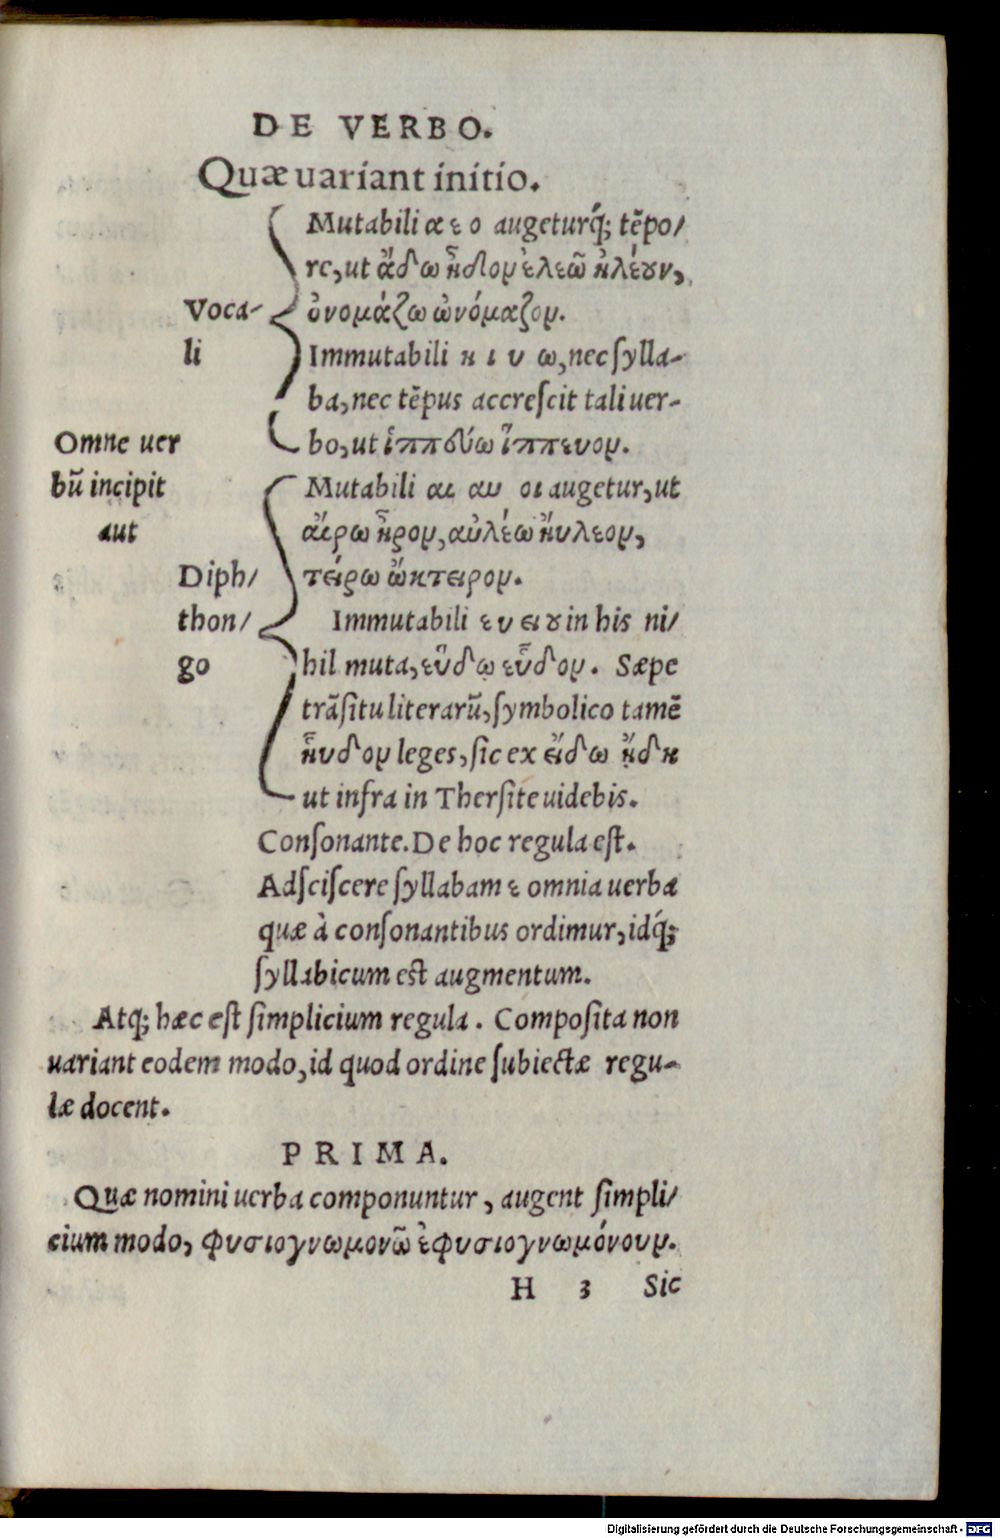 DE VERBO.
Quæ uariant initio.
Mutabili α ε ο augeturq́; tẽpo/
re, ut ᾄδω ᾖδον ἐλεῶ ἠλέουν,
ὀνομάζω ὠνόμαζον.
Voca-
li
Immutabili η ι υ ω, nec ſylla-
ba, nec tẽpus accreſcit tali uer-
bo, ut ἱππεύω ἵππευον.
Omne uer
bũ incipit
aut
Mutabili αι αυ οι augetur, ut
αἴρω ᾖρον, αὐλέω ηὔλεον,
τείρω ᾤκτειρον.
Diph/
thon/
go
Immutabili ευ ει ου in his ni/
hil muta, εὕδω εὗδον. Sæpe
trãſitu literarũ, ſymbolico tamẽ
ηὗδον leges, ſic ex εἴδω ᾔδη
ut infra in Therſite uidebis.
Conſonante. De hoc regula eſt.
Adſciſcere ſyllabam ε omnia uerba
quæ à conſonantibus ordimur, idq́;
ſyllabicum eſt augmentum.
Atq; hæc eſt ſimplicium regula. Compoſita non
uariant eodem modo, id quod ordine ſubiectæ regu-
læ docent.
PRIMA.
Quæ nomini uerba componuntur, augent ſimpli/
cium modo, φυσιογνωμονῶ ἐφυσιογνωμόνουν.
H 3 Sic
Digitalisierung gefördert durch die Deutsche Forschungsgemeinschaft - DFG